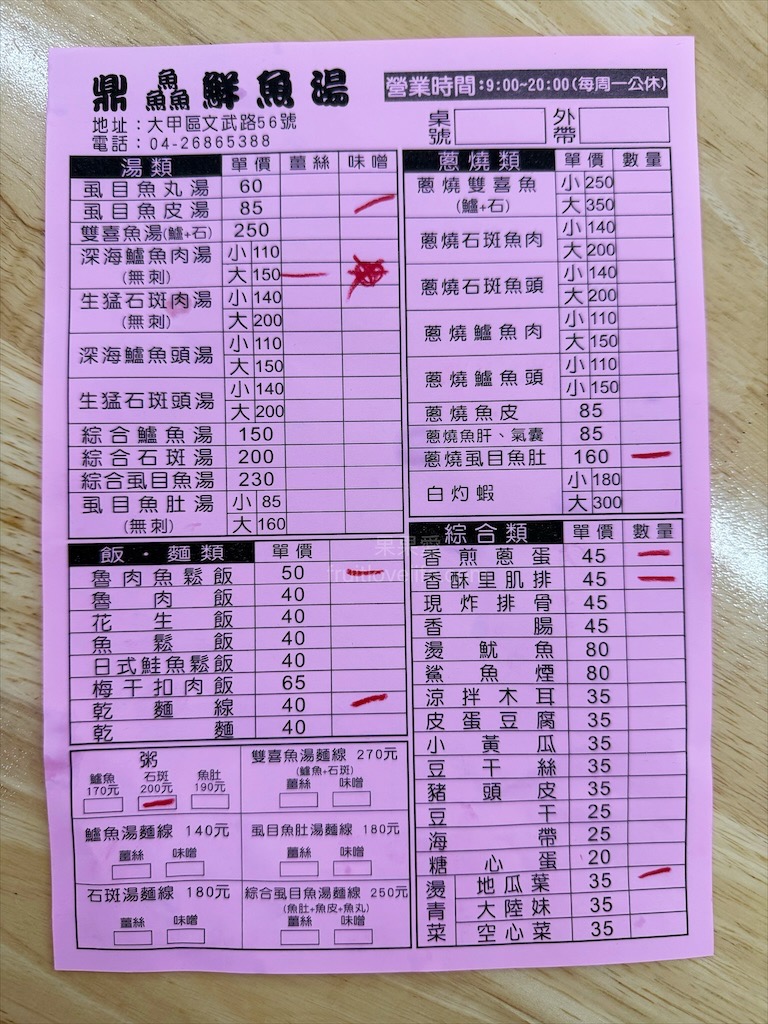 鼎鱻鮮魚湯
營業時間:9:00~20:00(每周一公休)
地址:大甲區文武路56號
電話:04-26865388
桌號
外帶
湯類 單價 薑絲 味噌
虱目魚丸湯 60
虱目魚皮湯 85
雙喜魚湯(鱸+石) 250
深海鱸魚肉湯 小 110
(無刺) 大 150
生猛石斑肉湯 小 140
(無刺) 大 200
深海鱸魚頭湯 小 110
大 150
生猛石斑頭湯 小 140
大 200
綜合鱸魚湯 150
綜合石斑湯 200
綜合虱目魚湯 230
虱目魚肚湯 小 85
(無刺) 大 160
飯・麵類 單價
魯肉魚鬆飯 50
魯肉飯 40
花生飯 40
魚鬆飯 40
日式鮭魚鬆飯 40
梅干扣肉飯 65
乾麵線 40
乾麵 40
粥
鱸魚 石斑 魚肚
170元 200元 190元
雙喜魚湯麵線 270元
(鱸魚+石斑)
薑絲 味噌
鱸魚湯麵線 140元
薑絲 味噌
虱目魚肚湯麵線 180元
薑絲 味噌
石斑湯麵線 180元
薑絲 味噌
綜合虱目魚湯麵線 250元
(魚肚+魚皮+魚丸)
薑絲 味噌
蔥燒類 單價 數量
蔥燒雙喜魚 小 250
(鱸+石) 大 350
蔥燒石斑魚肉 小 140
大 200
蔥燒石斑魚頭 小 140
大 200
蔥燒鱸魚肉 小 110
大 150
蔥燒鱸魚頭 小 110
小 150
蔥燒魚皮 85
蔥燒魚肝、氣囊 85
蔥燒虱目魚肚 160
白灼蝦 小 180
大 300
綜合類 單價 數量
香煎蔥蛋 45
香酥里肌排 45
現炸排骨 45
香腸 45
燙魷魚 80
鯊魚煙 80
涼拌木耳 35
皮蛋豆腐 35
小黃瓜 35
豆干絲 35
豬頭皮 35
豆干 25
海帶 25
糖心蛋 20
燙青菜
地瓜葉 35
大陸妹 35
空心菜 35